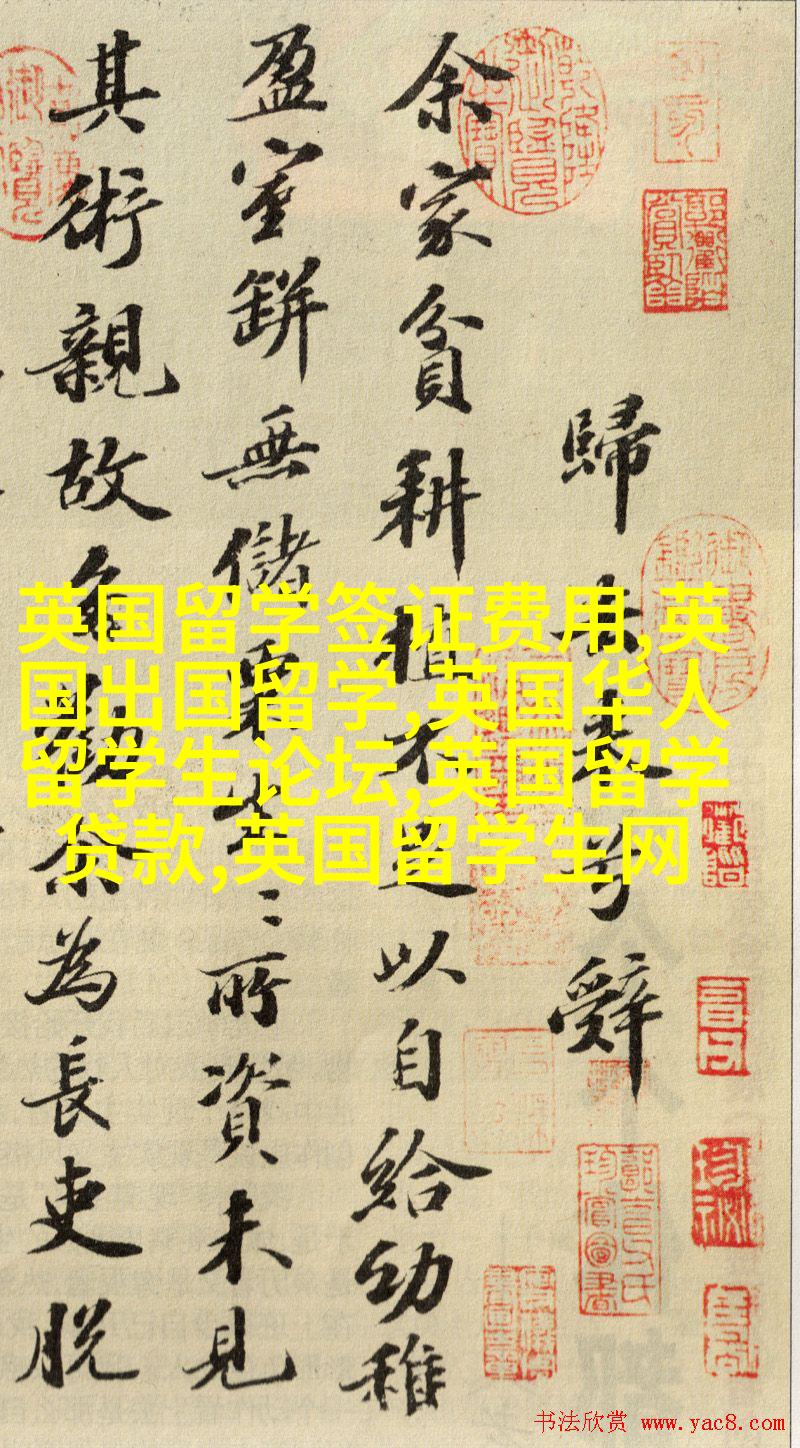 歸去来兮辭
余家貧耕植不足以自給幼稚
盈室缾無儲粟生〻所資未見
其術親故多勸余為長吏脱
英国留学签证费用,英
国出国留学,英国华人
留学生论坛,英国留学
贷款,英国留学生网
书法欣赏 www.yac8.com